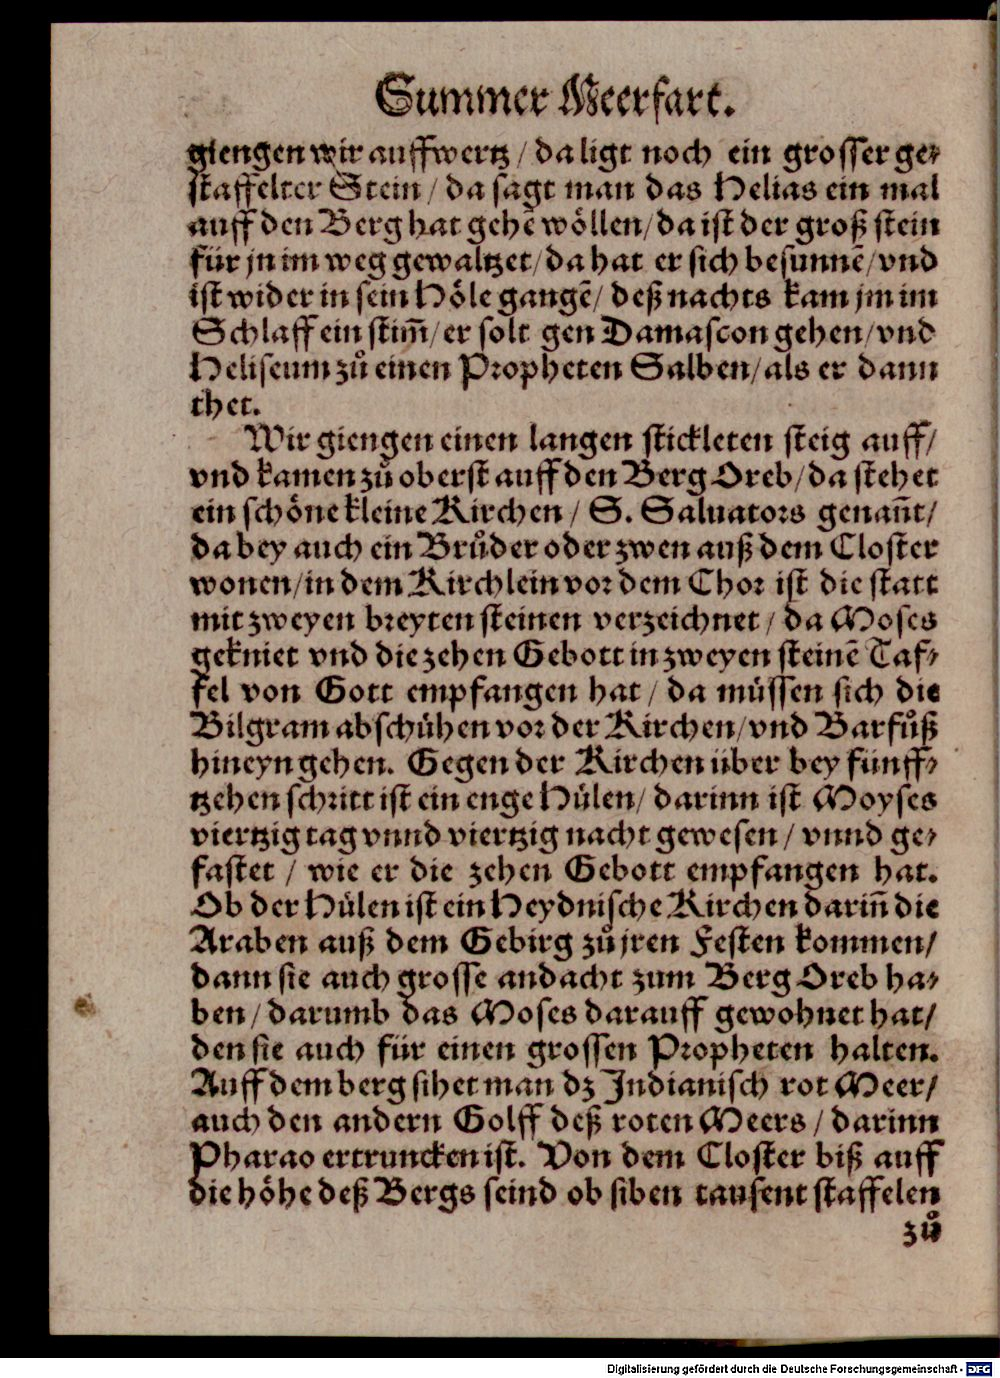 Summer Meerfart.
giengen wir auffwertz / da ligt noch ein grosser ge⸗
staffelter Stein / da sagt man das Helias ein mal
auff den Berg hat gehē wöllen / da ist der groß stein
für jn im weg gewaltzet / da hat er sich besunnē / vnd
ist wider in sein Höle gangē / deß nachts kam jm im
Schlaff ein stim̄ / er solt gen Damascon gehen / vnd
Heliseum zů einen Propheten Salben / als er dann
thet.
Wir giengen einen langen stickleten steig auff /
vnd kamen zů oberst auff den Berg Oreb / da stehet
ein schöne kleine Kirchen / S. Saluators genañt /
da bey auch ein Brůder oder zwen auß dem Closter
wonen / in dem Kirchlein vor dem Chor ist die statt
mit zweyen breyten steinen verzeichnet / da Moses
gekniet vnd die zehen Gebott in zweyen steinē Taf⸗
fel von Gott empfangen hat / da müssen sich die
Bilgram abschühen vor der Kirchen / vnd Barfůß
hineyn gehen. Gegen der Kirchen über bey fünff⸗
tzehen schritt ist ein enge Hülen / darinn ist Moyses
viertzig tag vnnd viertzig nacht gewesen / vnnd ge⸗
fastet / wie er die zehen Gebott empfangen hat.
Ob der Hülen ist ein Heydnische Kirchen dariñ die
Araben auß dem Gebirg zů jren Festen kommen /
dann sie auch grosse andacht zum Berg Oreb ha⸗
ben / darumb das Moses darauff gewohnet hat /
den sie auch für einen grossen Propheten halten.
Auff dem berg sihet man dz Indianisch rot Meer /
auch den andern Golff deß roten Meers / darinn
Pharao ertruncken ist. Von dem Closter biß auff
die höhe deß Bergs seind ob siben tausent staffelen
zů
Digitalisierung gefördert durch die Deutsche Forschungsgemeinschaft - DFG